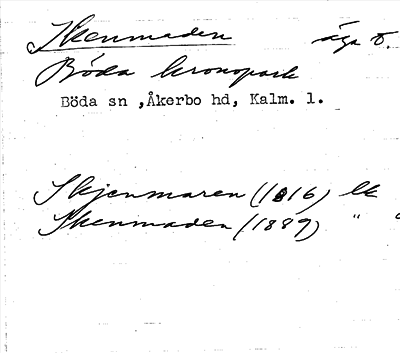 Skenmaden äga o.
Böda kronopark
Böda sn ,Åkerbo hd, Kalm. l.
Skjenmaren (1816) lk
Skenmaden (1889) " "